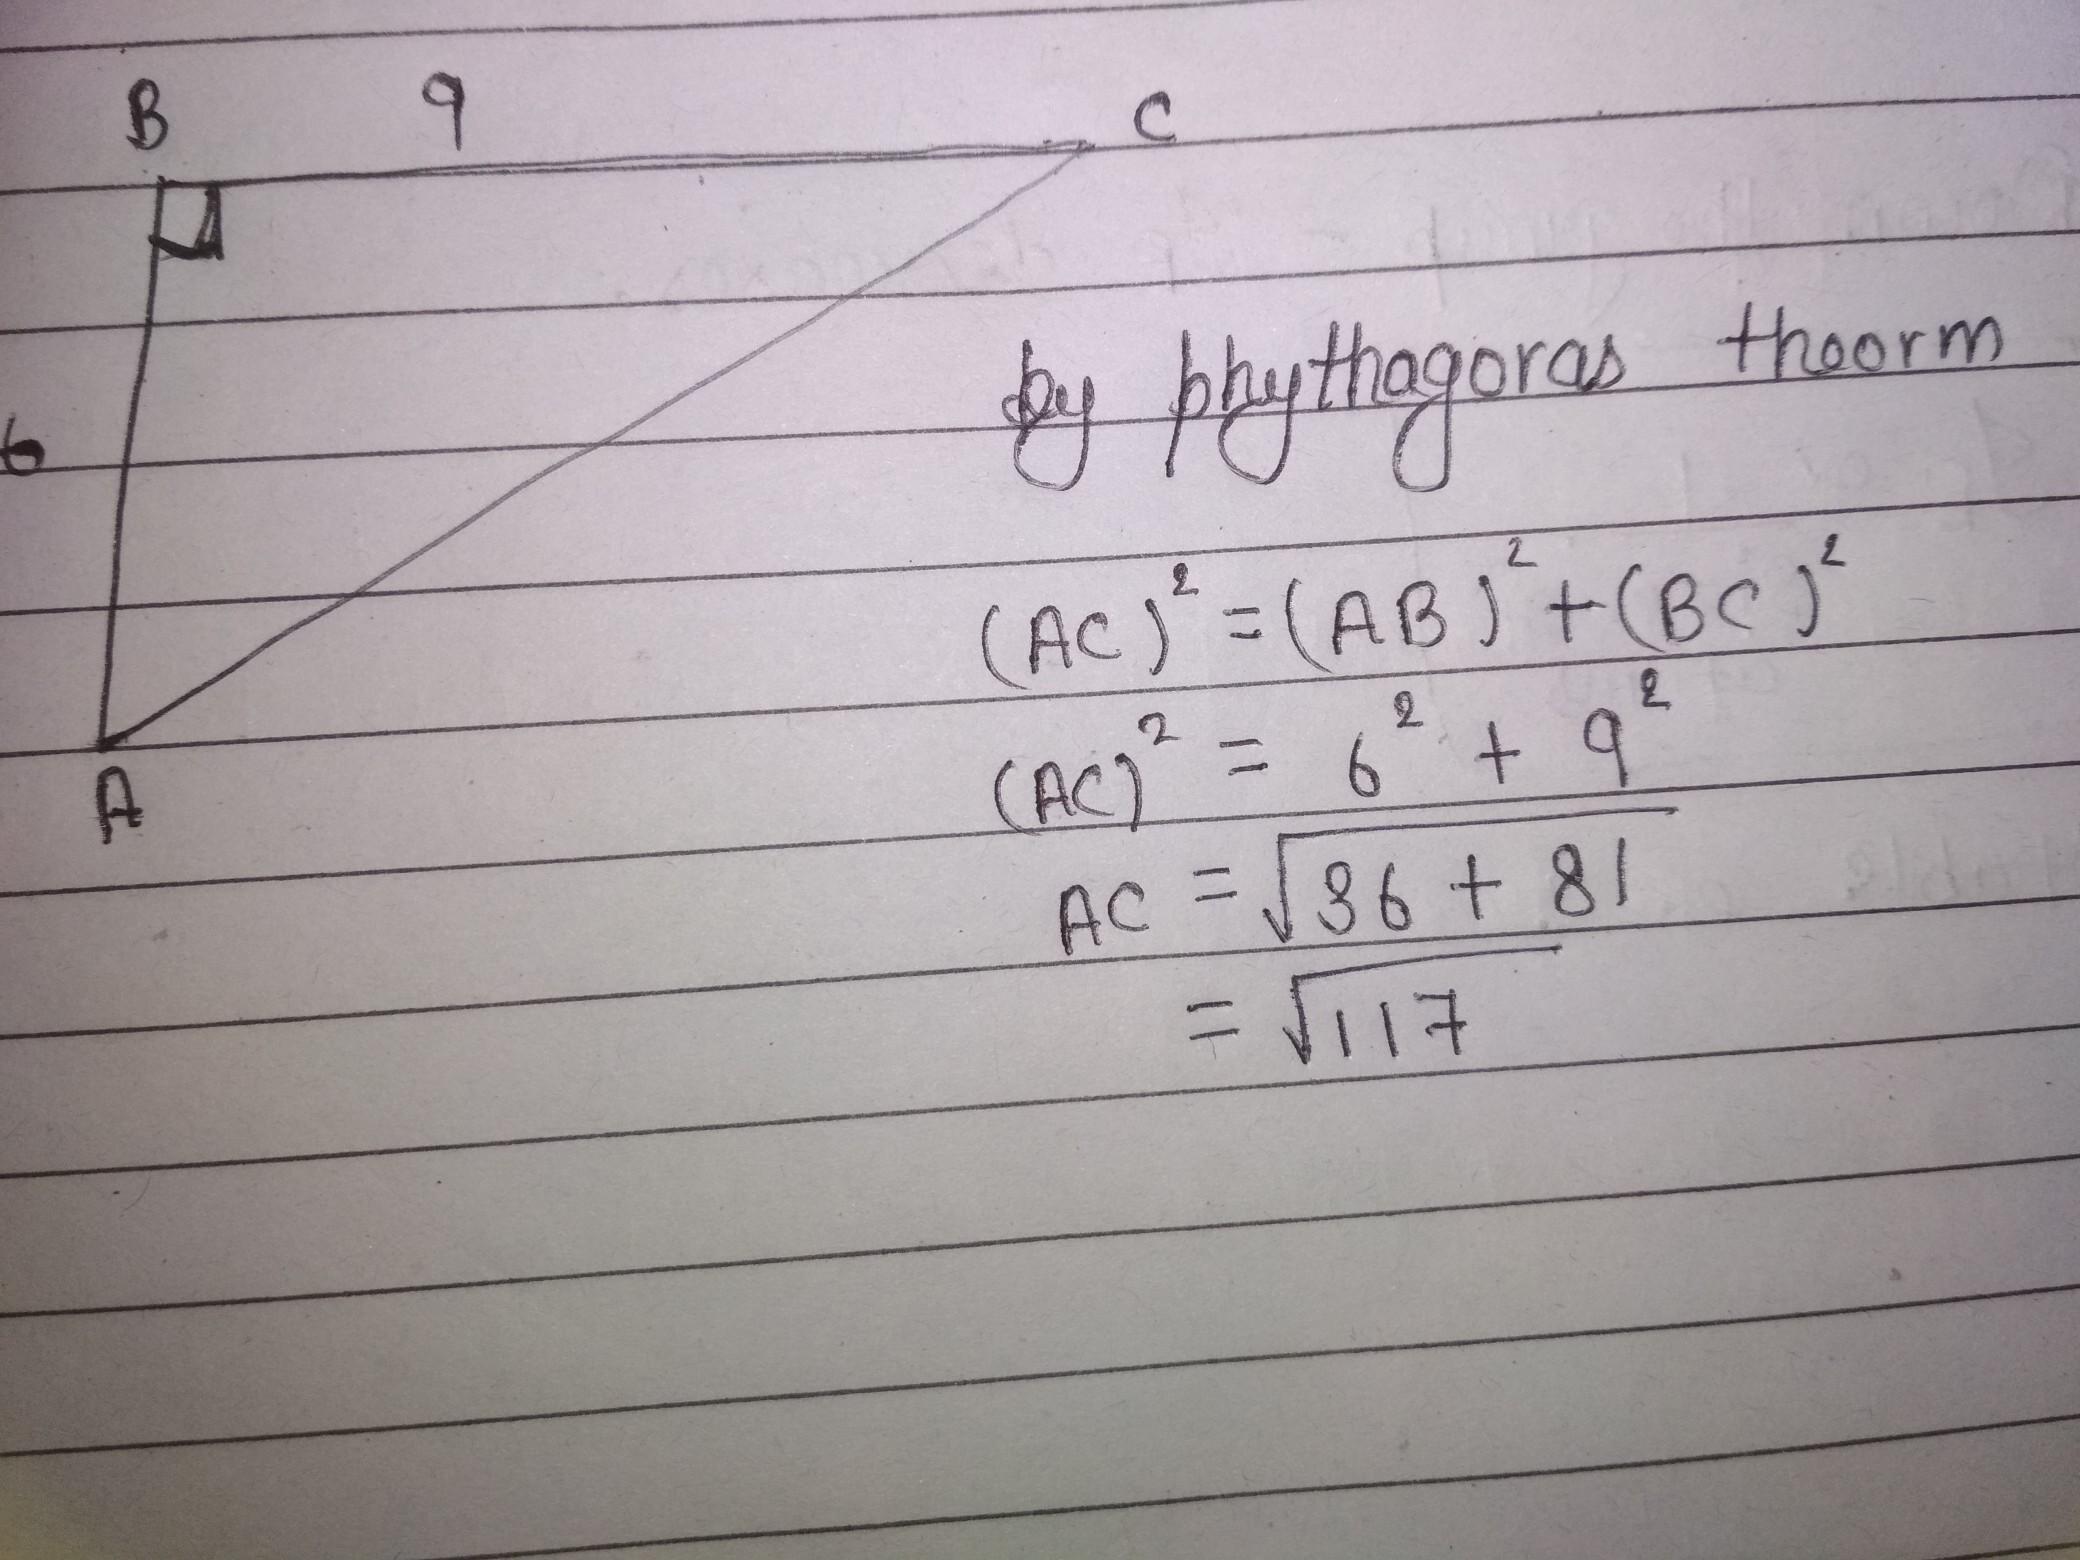 B 9 C
6
A
by phythagoras theorm
(AC)² = (AB)² + (BC)²
(AC)² = 6² + 9²
AC = √36 + 81
= √117